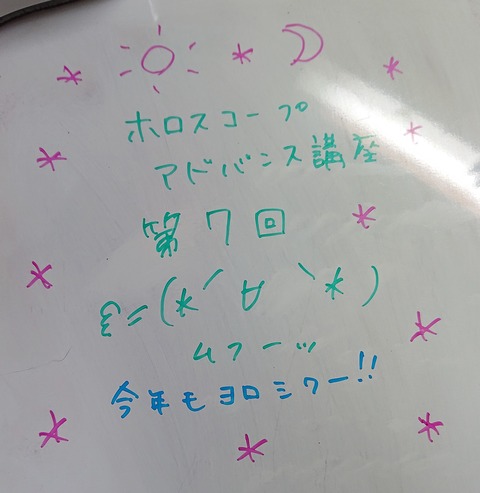 ホロスコープ
アドバンス講座
第7回
ε=(*´∀`*)
ムフーッ
今年もヨロシクー!!